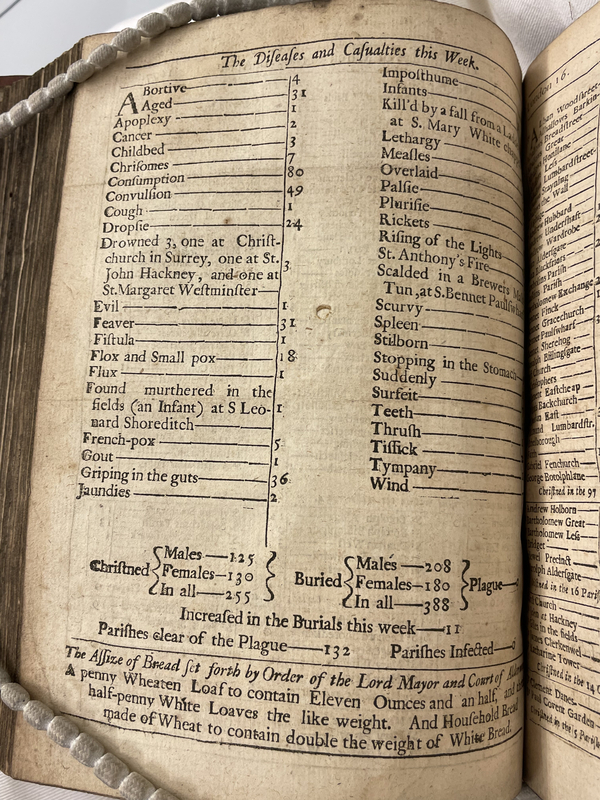 The Diſeaſes and Caſualties this Week.
ABortive 4
Aged 31
Apoplexy 1
Cancer 2
Childbed 3
Chriſomes 7
Conſumption 80
Convulſion 49
Cough 1
Dropſie 24
Drowned 3, one at Chriſt-
church in Surrey, one at St.
John Hackney, and one at 3
St. Margaret Weſtminſter
Evil 1
Feaver 31
Fiſtula 1
Flox and Small pox 18
Flux 1
Found murthered in the
fields (an Infant) at S Leo- 1
nard Shoreditch
French-pox 5
Gout 1
Griping in the guts 36
Jaundies 2
Impoſthume
Infants
Kill'd by a fall from a
at S. Mary White
Lethargy
Meaſles
Overlaid
Palſie
Pluriſie
Rickets
Riſing of the Lights
St. Anthony's Fire
Scalded in a Brewers
Tun, at S. Bennet
Scurvy
Spleen
Stilborn
Stopping in the Stomach
Suddenly
Surfeit
Teeth
Thruſh
Tiſſick
Tympany
Wind
Chriſtned { Males 125 Females 130 In all 255 }
Buried { Males 208 Females 180 In all 388 } Plague
Increaſed in the Burials this week 11
Pariſhes clear of the Plague 132 Pariſhes Infected
The Aſſize of Bread ſet forth by Order of the Lord Mayor and Court of
A penny Wheaten Loaf to contain Eleven Ounces and an half, and
half-penny White Loaves the like weight. And Houſhold Bread
made of Wheat to contain double the weight of White Bread.
16.
Woodſtreet
Breadſtreet
Lumbardſtreet
Stayning
the Wall
Hubbard
Underſhaft
Wardrobe
Pariſh
Pariſh
Exchange
Finck
Gracechurch
Paulſwharf
Sherehog
Billingſgate
Eaſtcheap
Backchurch
Eaſt
Lumbardſtr.
Fenchurch
George Botolphlane
Chriſtned in the 97
Andrew Holborn
Bartholomew Great
Bartholomew Leſs
Bridget
Precinct
Alderſgate
in the 16
Church
at Hackney
in the fields
Clerkenwel
Tower
Chriſtned in the 14
Clement Danes
Covent Garden